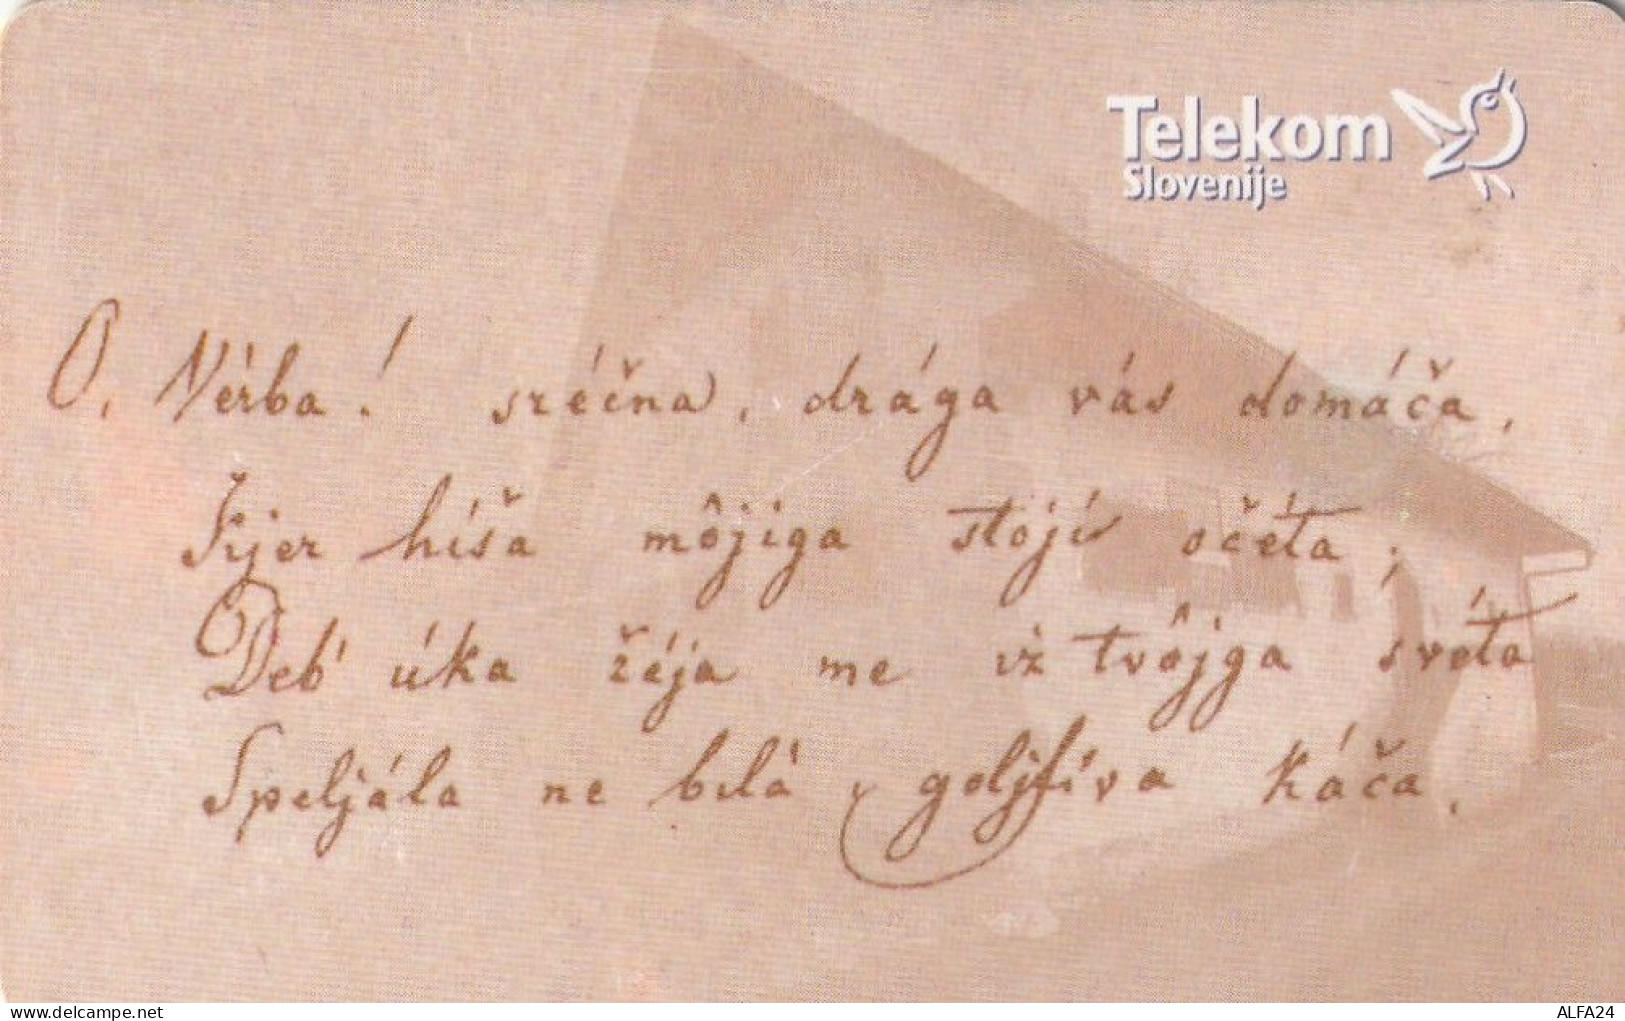 Telekom
Slovenije
O, Vérba! sréčna, drága vás domáča,
Kjer híša môjiga stojí očéta;
Deb' úka žéja me iz tvôjga svéta
Speljála ne bilà, goljfíva káča.
www.delcampe.net
ALFA24